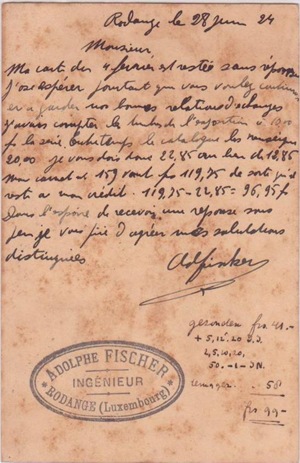 Rodange le 28 Juin 24
Monsieur,
Ma carte du 4 février est restée sans réponse
J'ose espérer pourtant que vous voulez continuer
à garder nos bonnes relations d'échanges
J'avais compté les timbres de l'exposition à
fr la série, le catalogue les renseigne
20,00 je vous dois donc 22,85 au lieu de 12,85
Mon carnet à 159 vaut frs 119,75 de sorte qu'il
reste à mon crédit. 119,75 - 22,85 = 96,95 f
Dans l'espoir de recevoir une réponse sous
peu je vous prie d'agréer mes salutations
distinguées
gezonden frs 41.-
+ 5, 12. 20
2, 5, 10, 20,
50. - 1 - IN.
58
frs 99 -
ADOLPHE FISCHER
INGÉNIEUR
RODANGE (Luxembourg)